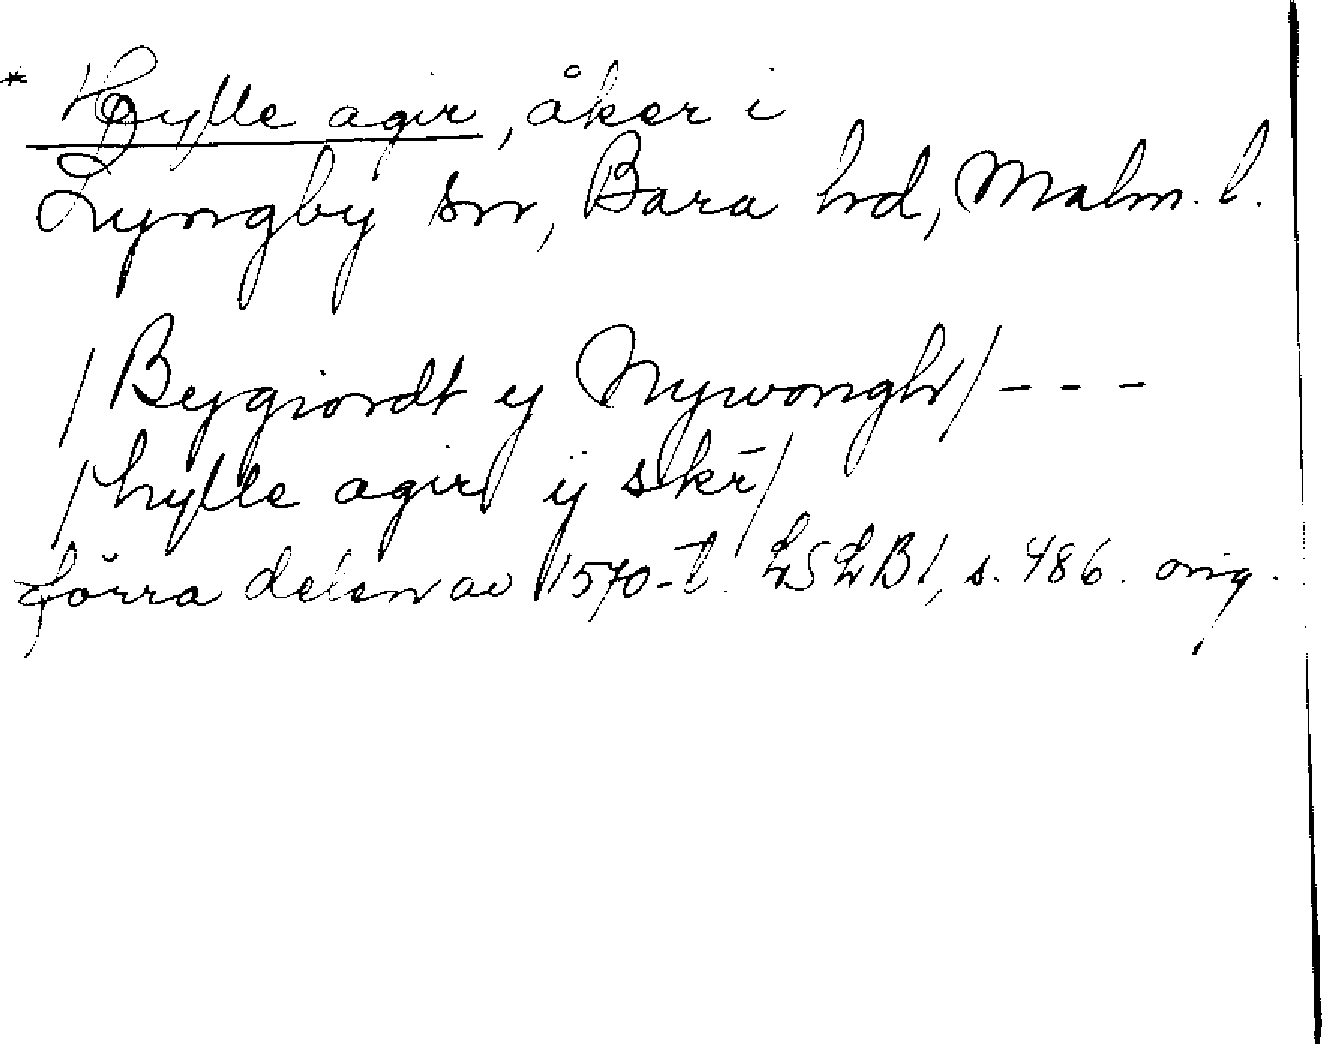 * Hylle agir, åker i
Lyngby sn, Bara hd, Malm. l.
/Bygiordt ij Nywongh/ - - -
/hylle agir ij skr̄/
förra delen av 1570-t. LSLB1, s. 486. orig.